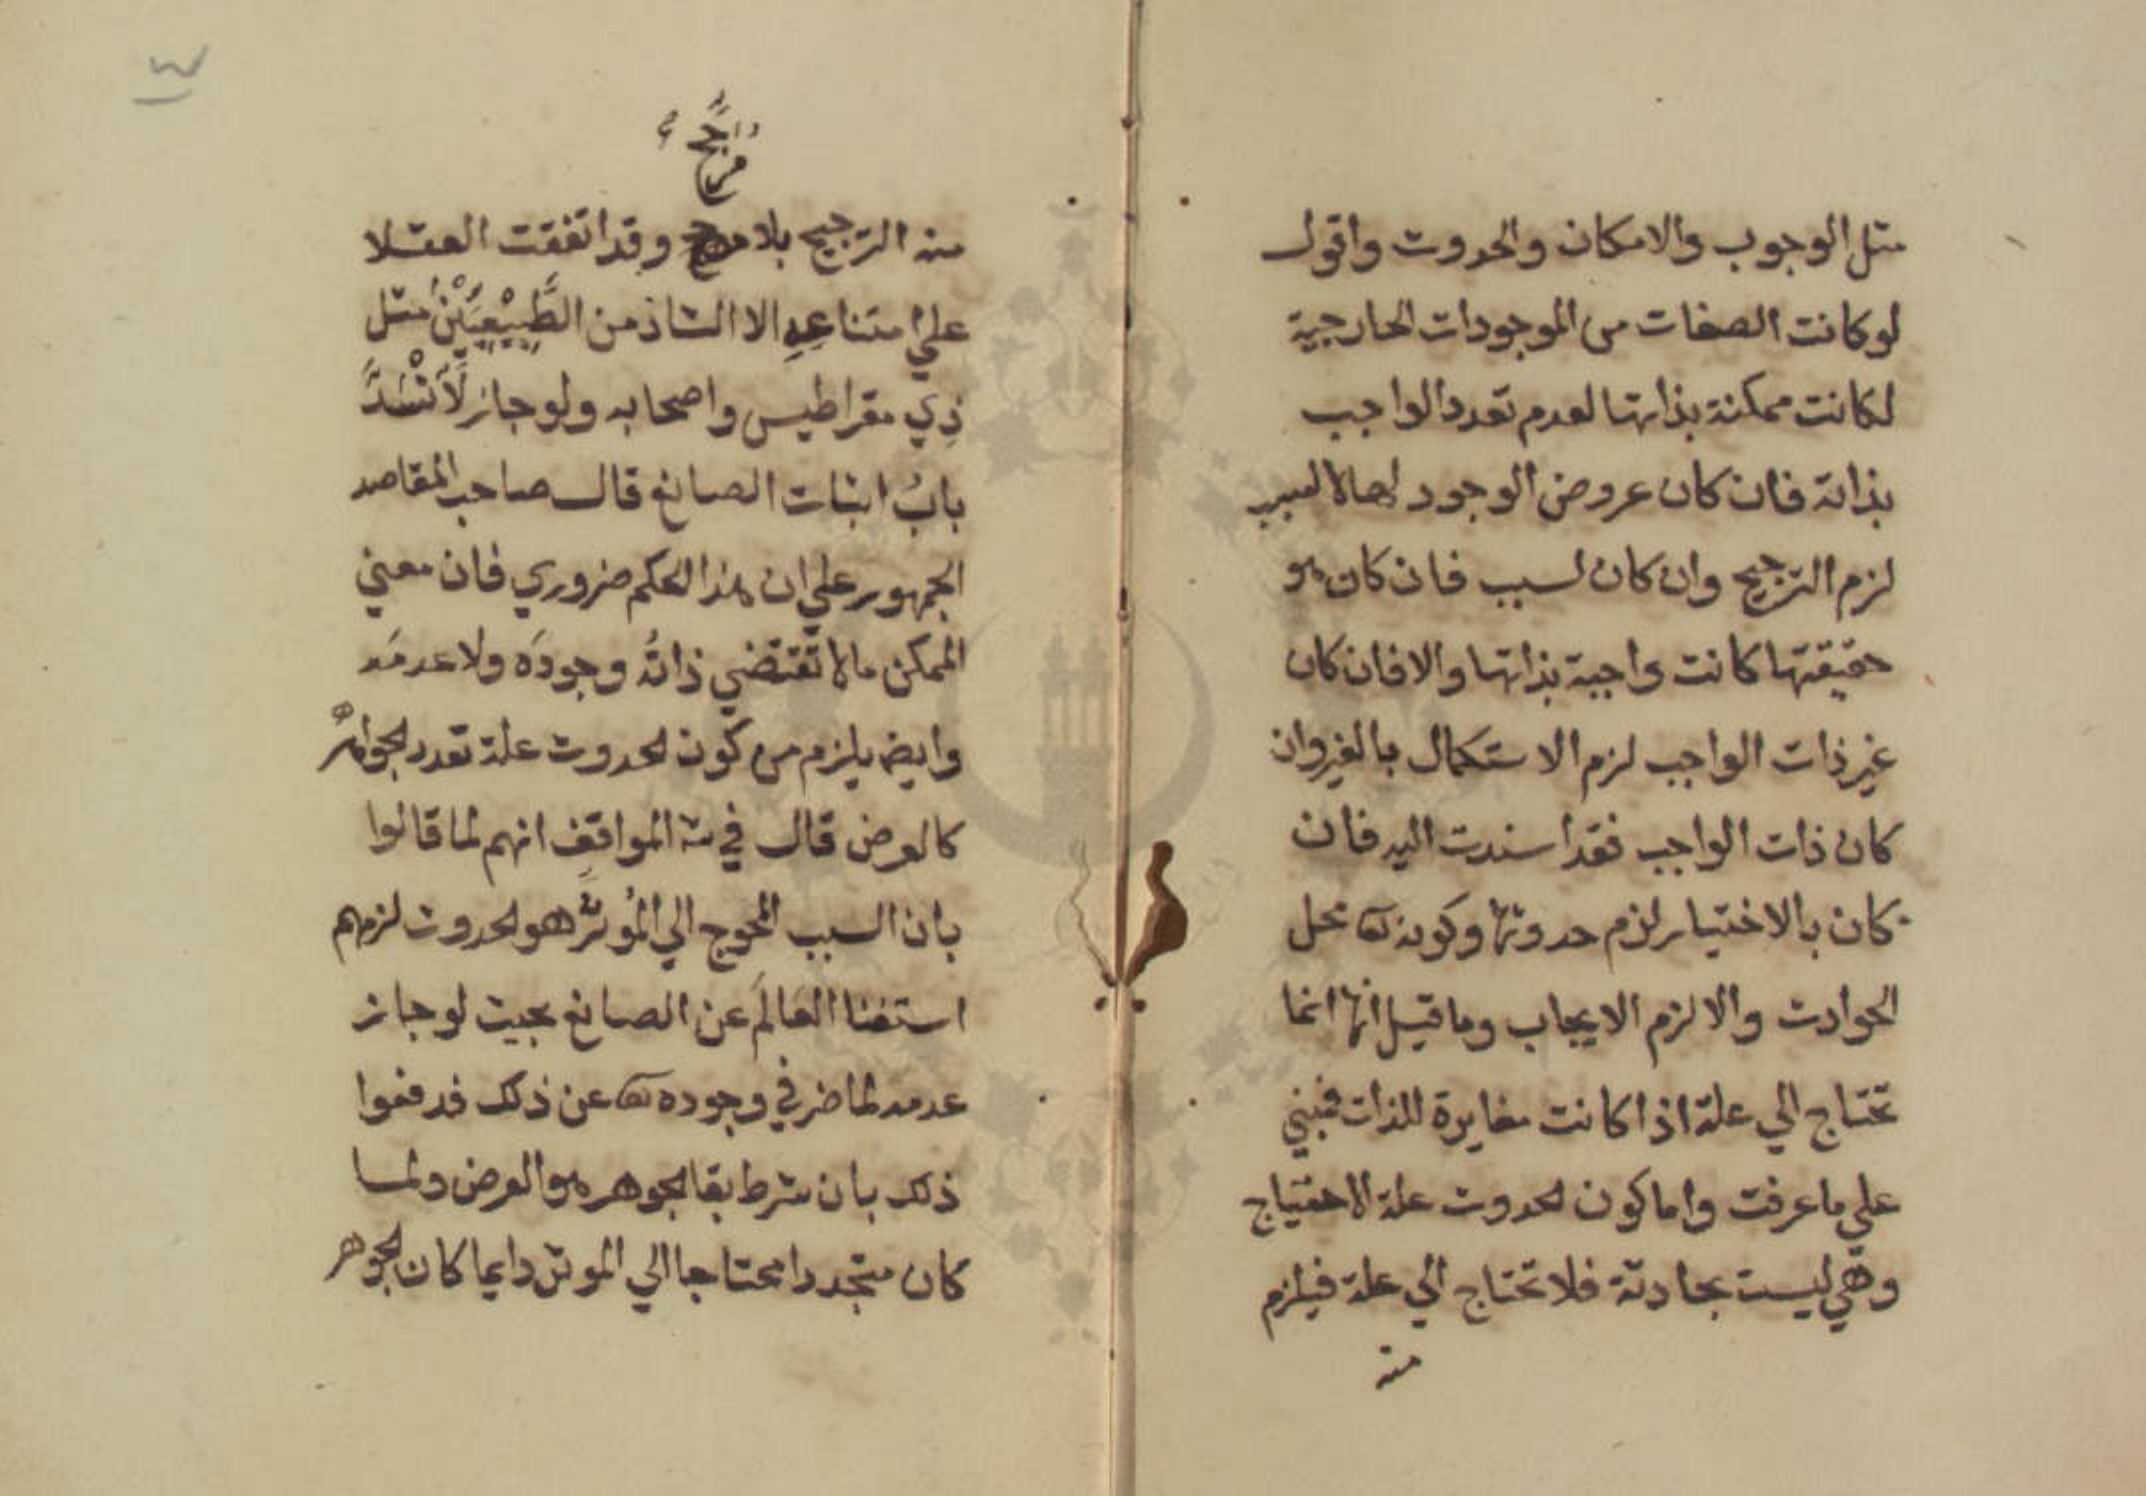 مثل الوجوب والامكان والحدوث واقول
لو كانت الصفات من الموجودات الخارجية
لكانت ممكنة بذاتها لعدم تعدد الواجب
بذاته فان كان عروض الوجود لها لا لسبب
لزم الترجيح وان كان لسبب فان كان هو
حقيقتها كانت واجبة بذاتها والا فان كان
غير ذات الواجب لزم الاستكمال بالغير وان
كان ذات الواجب فقد اسندت اليه فان
كان بالاختيار لزم حدوثها وكونه تعا محل
الحوادث والا لزم الايجاب وما قيل انها انما
تحتاج الي علة اذا كانت مغايرة للذات فمبني
علي ما عرفت واما كون الحدوث علة الاحتياج
وهي ليست بحادثة فلا تحتاج الي علة فيلزم
منه
٣
مُرَجِّح
منه الترجيح بلا مرجح وقد اتفقت العقلا
علي امتناعِهِ الا الشاذ من الطَّبِيْعِيِّيْنَ مثل
ذِي مقراطيس واصحابه ولو جاز لَاَنْسَدَّ
بابُ اثبات الصانع قال صاحب المقاصد
الجمهور علي ان هذا الحكم ضروري فان معني
الممكن ما لا تقتضي ذاتُه وجودَه ولا عدمَه
وايض يلزم من كون الحدوث علة تعدد الجواهر
كالعرض قال في شـ المواقفِ انهم لما قالوا
بان السبب المحوج الي المُوثّر هو الحدوث لزمهم
استغنا العَالَم عن الصانع بحيث لو جاز
عدمه لما ضر في وجوده تعا عن ذلك فدفعوا
ذلك بان شرط بقا الجوهر هو العرض ولما
كان متجددا محتاجا الي الموثر دايما كان الجوهر